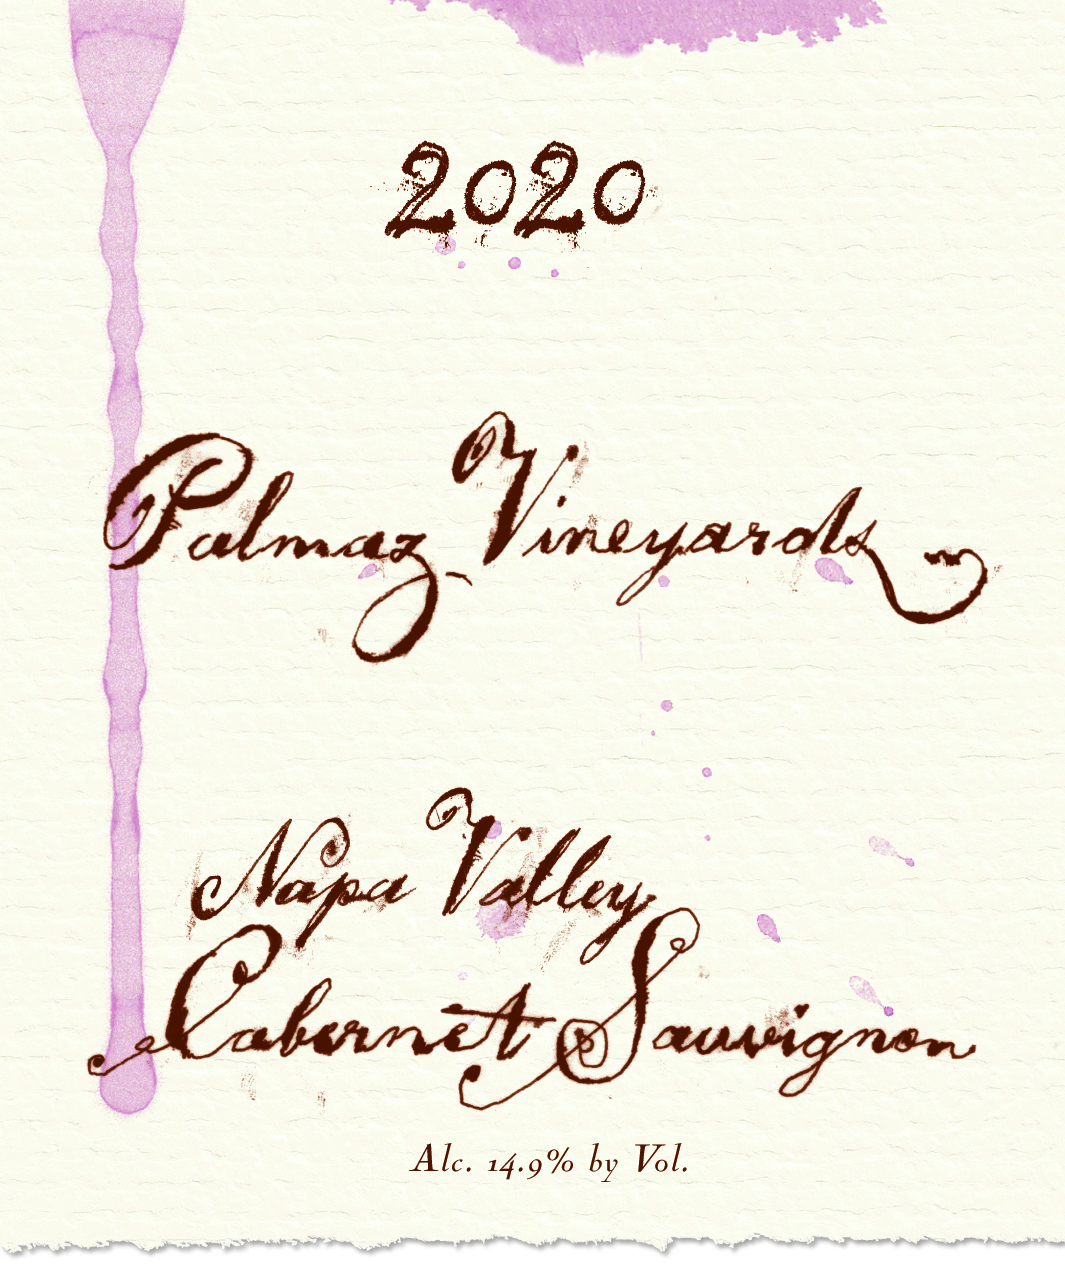 2020
Palmaz Vineyards
Napa Valley
Cabernet Sauvignon
Alc. 14.9% by Vol.